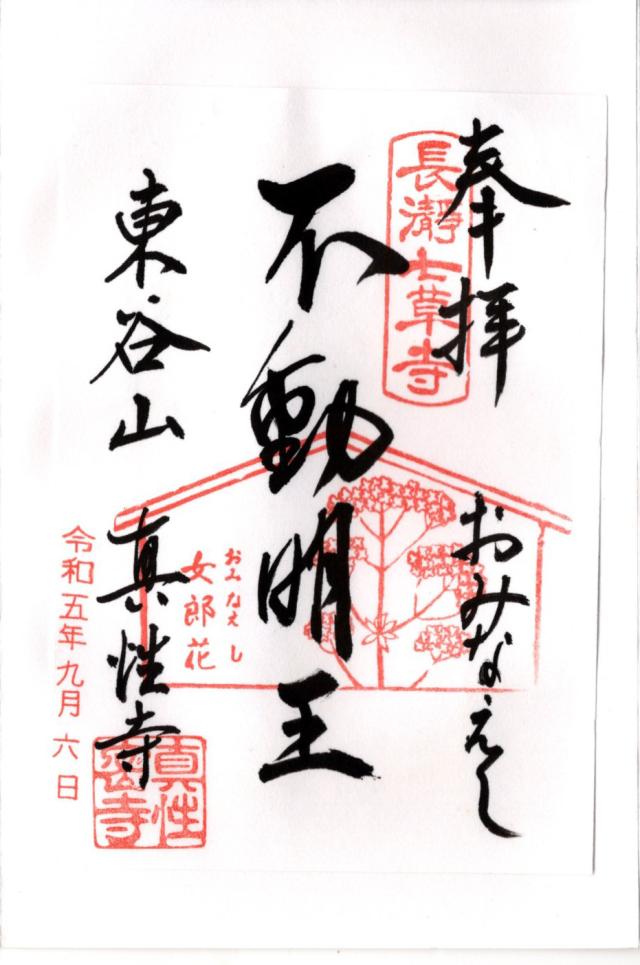 奉拝 おみなえし
長瀞七草寺
不動明王
おみなえし
女郎花
東谷山 真性寺
真性
寺
令和五年九月六日